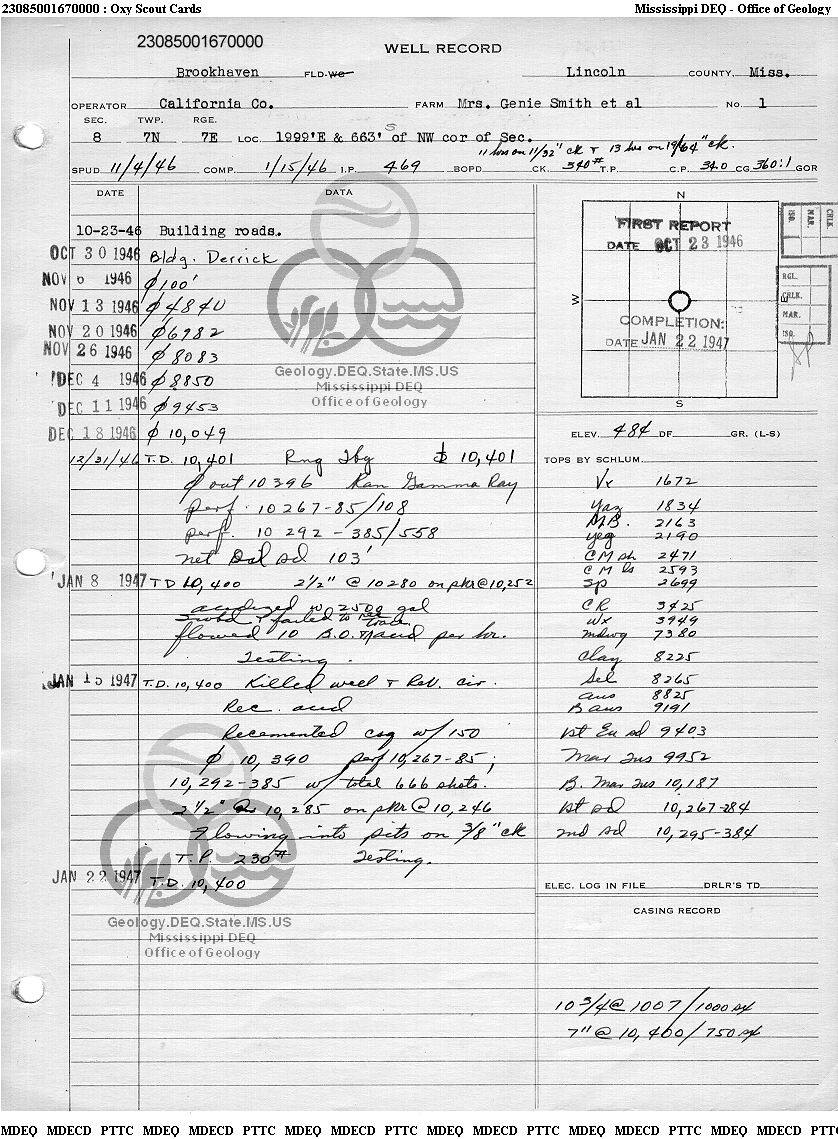 23085001670000 : Oxy Scout Cards Mississippi DEQ - Office of Geology
23085001670000
WELL RECORD
Brookhaven FLD. WC Lincoln COUNTY, Miss.
OPERATOR California Co. FARM Mrs. Genie Smith et al NO. 1
SEC. TWP. RGE.
8 7N 7E LOC. 1999'E & 663' S of NW cor of Sec.
11 hrs on 11/32" ck + 13 hrs on 19/64" ck.
SPUD 11/4/46 COMP. 1/15/46 I.P. 469 BOPD CK. 340# T.P. C.P. 34.0 CG 360:1 GOR
DATE DATA
10-23-46 Building roads.
OCT 30 1946 Bldg. Derrick
NOV 6 1946 ϕ 100'
NOV 13 1946 ϕ 4840
NOV 20 1946 ϕ 6982
NOV 26 1946 ϕ 8083
DEC 4 1946 ϕ 8850
DEC 11 1946 ϕ 9453
DEC 18 1946 ϕ 10,049
12/31/46 T.D. 10,401 Rng Tbg 10,401
ϕ out 10396 Ran Gamma Ray
perf. 10267-85/108
perf. 10 292 - 385/558
net sd 103'
JAN 8 1947 T D 10,400 2½" @ 10280 on pkr @ 10,252
acidized w 2500 gal
swbd & failed to
flowed 10 B.O. + acid per hr.
Testing.
JAN 15 1947 T.D. 10,400 Killed well + Rev. cir.
Rec. acid
Recemented csg w/150
ϕ 10,390 perf 10,267-85;
10,292-385 w/ total 666 shots.
2½" @ 10,285 on pkr @ 10,246
Flowing into pits on 3/8" ck
T.P. 230# Testing.
JAN 22 1947 T.D. 10,400
Geology.DEQ.State.MS.US
Mississippi DEQ
Office of Geology
Geology.DEQ.State.MS.US
Mississippi DEQ
Office of Geology
N
W
S
FIRST REPORT
DATE OCT 23 1946
COMPLETION:
DATE JAN 22 1947
ISO.
MAR.
CHLK.
RGL.
CHLK.
MAR.
ISO.
ELEV. 484 DF GR. (L-S)
TOPS BY SCHLUM.
Vx 1672
Yaz 1834
M.B. 2163
Yeg 2190
C M sh 2471
C M ls 2593
Sp 2699
CR 3425
Wx 3949
mdwg 7380
Clay 8225
Sel 8265
aus 8825
B aus 9191
1st Eu sd 9403
Mar Tus 9952
B. Mar Tus 10,187
1st sd 10,267-284
2nd sd 10,295-384
ELEC. LOG IN FILE DRLR'S TD
CASING RECORD
10 3/4 @ 1007/1000 sx
7" @ 10,400/750 sx
MDEQ MDECD PTTC MDEQ MDECD PTTC MDEQ MDECD PTTC MDEQ MDECD PTTC MDEQ MDECD PTTC